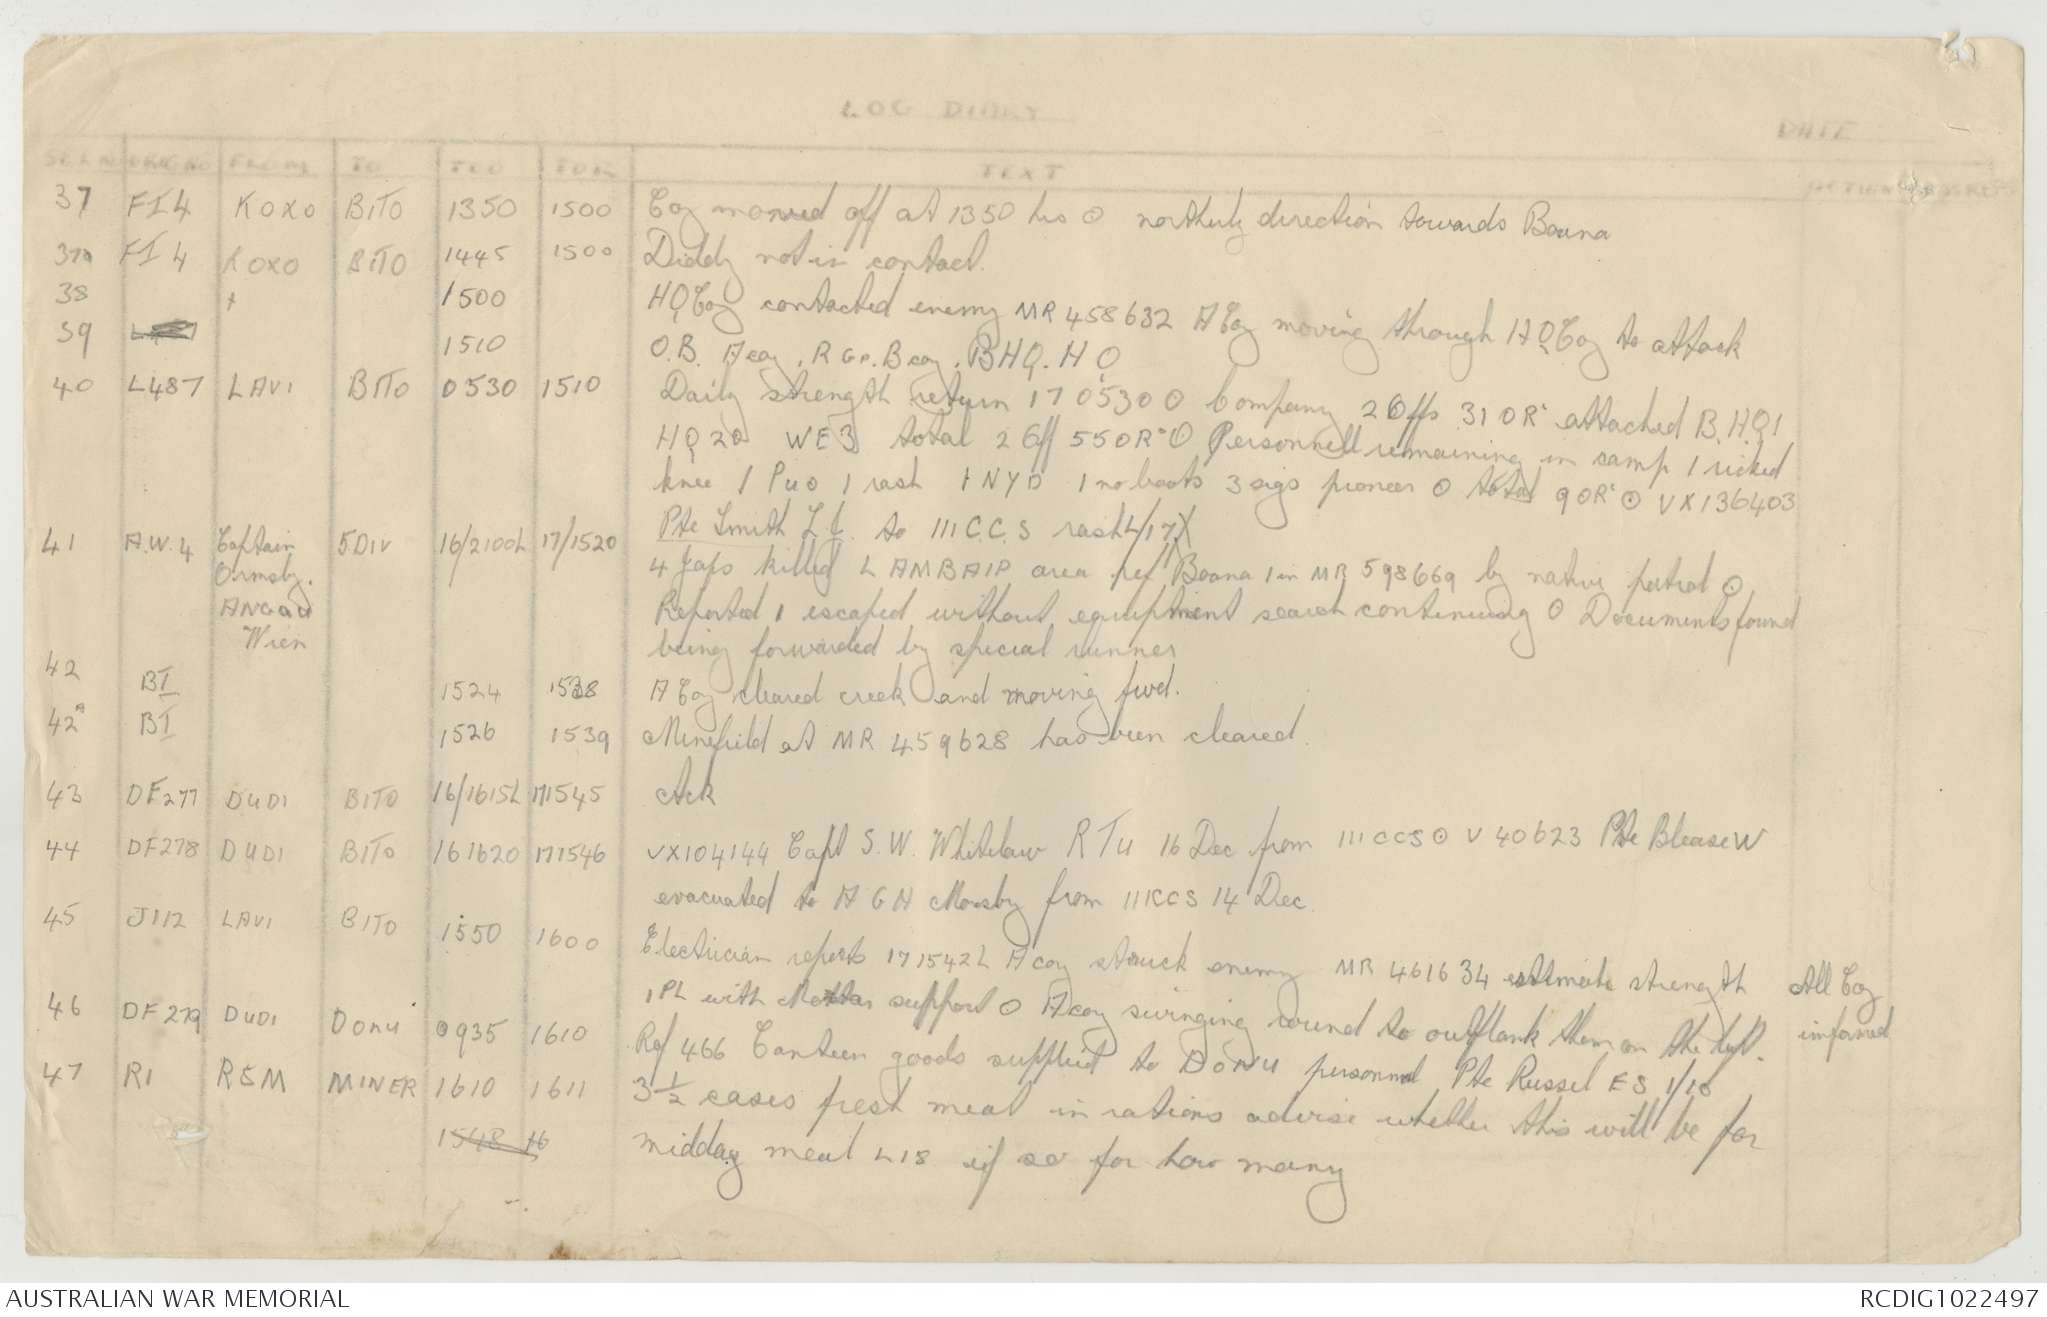 LOG DIARY
DATE
SERNO ORIGNO FROM TO TOO TOR TEXT ACTION
37 FI4 KOXO BITO 1350 1500 Coy moved off at 1350 hrs ⊙ northerly direction towards Boana
37a FI4 KOXO BITO 1445 1500 Diddy not in contact.
38 1500 HQ Coy contacted enemy MR 458632 A Coy moving through HQ Coy to attack
39 1510 O.B. A coy, R Gp. B coy, BHQ. HQ
40 L487 LAVI BITO 0530 1510 Daily strength return 170530 ⊙ Company 2 Offs 31 OR's attached B.HQ 1
HQ 20 WE 3 total 2 Off 55 OR's ⊙ Personnell remaining in camp 1 ricked
knee 1 Puo 1 rash 1 NYD 1 no boots 3 sigs pioneer ⊙ total 9 OR's ⊙ VX136403
Pte Smith L. to 111 C.C.S rash
41 A.W.4 Captain Ormsby. ANGAU Wien 5 DIV 16/2100L 17/1520 4 Japs killed LAMBAIP area ref Boana 1 in MR 598669 by native patrol ⊙
Reported 1 escaped without equiptment search continuing ⊙ Documents found
being forwarded by special runner
42 BI 1524 1538 A Coy cleared creek and moving fwd.
42A BI 1526 1539 Minefield at MR 459628 has been cleared.
43 DF277 DUDI BITO 16/1615L 171545 Ack
44 DF278 DUDI BITO 161620 171546 VX104144 Capt S.W. Whitelaw RTU 16 Dec from 111 CCS ⊙ V40623 Pte Blease W
evacuated to AGH Moresby from 111 CCS 14 Dec.
45 J112 LAVI BITO 1550 1600 Electrician reports 171542L A coy struck enemy MR 461634 estimate strength All Coy
1 PL with Mortar support ⊙ A coy swinging round to outflank them on the left. informed
46 DF279 DUDI DONU 0935 1610 Ref 466 Canteen goods supplied to DONU personnel Pte Russel ES 1/10
47 R1 RSM MINER 1610 1611 3½ cases fresh meat in rations advise whether this will be for
1548 16 midday meal L18 if so for how many
AUSTRALIAN WAR MEMORIAL
RCDIG1022497